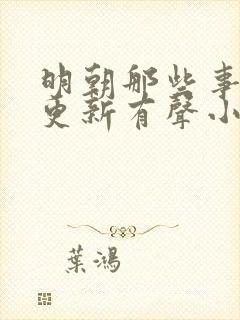 明朝那些事
更新有聲小
葉鴻